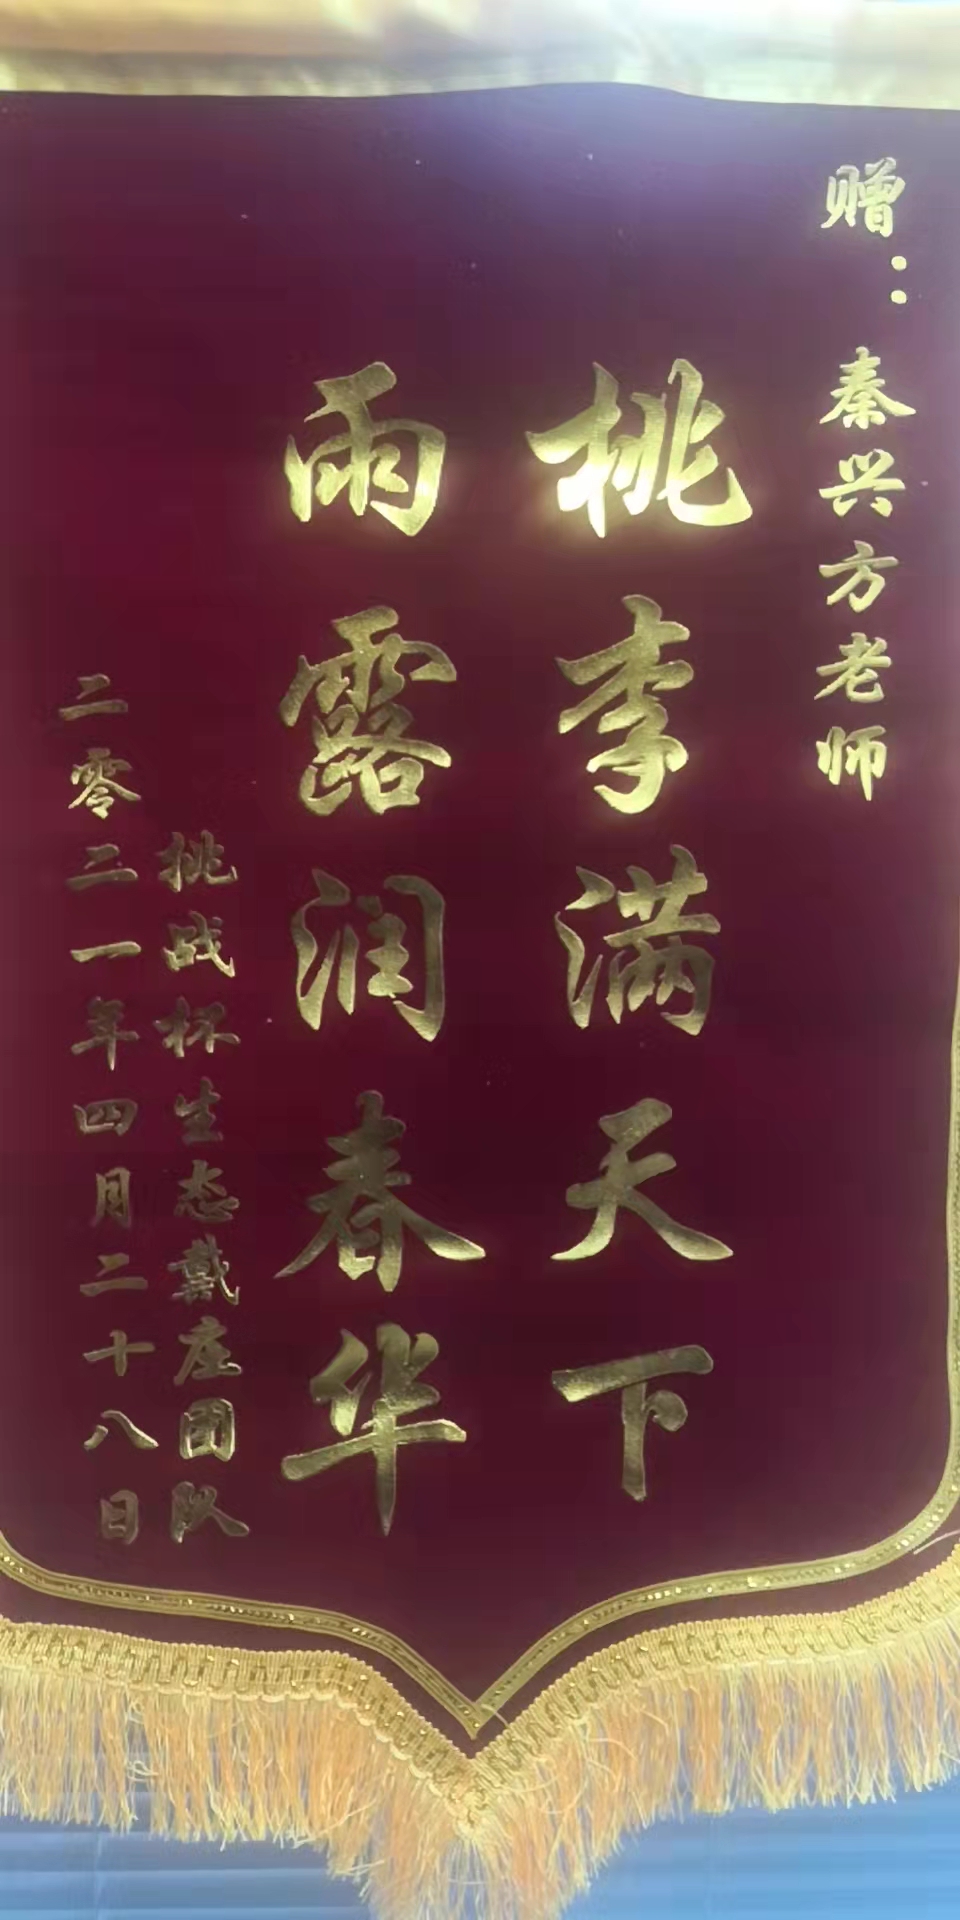 赠：秦兴方老师
桃李满天下
雨露润春华
挑战杯生态戴庄团队
二零二一年四月二十八日